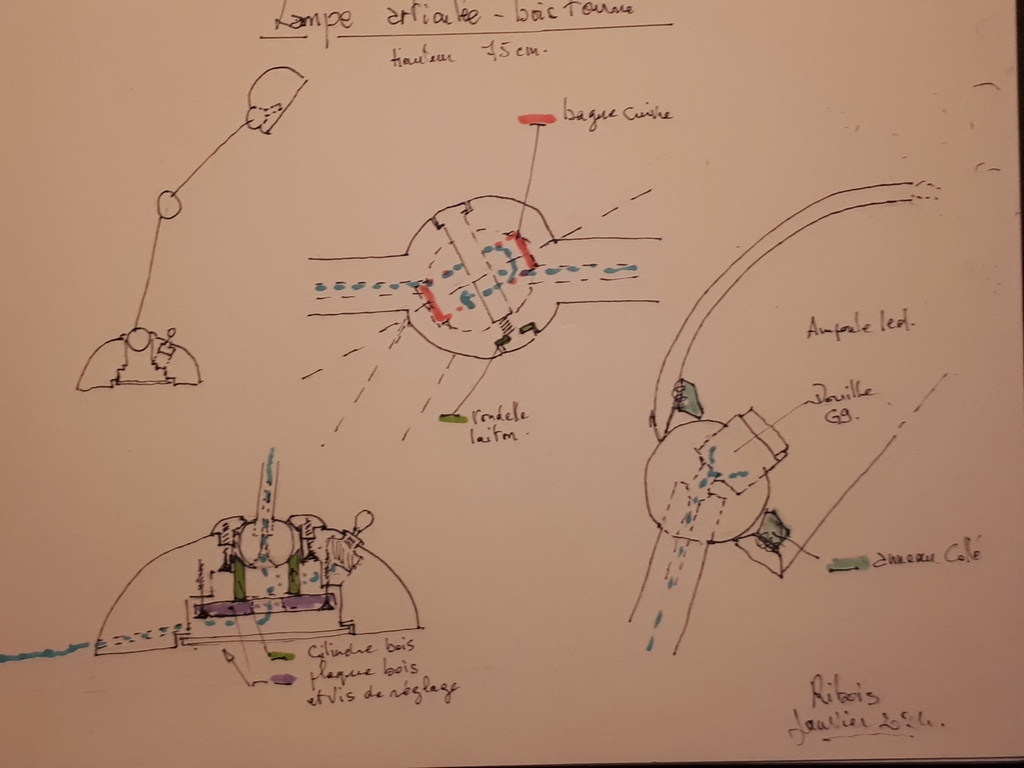 Lampe articulée - bois tourné
hauteur 75 cm.
bague cuivre
Ampoule led.
Douille
G9.
rondelle
laiton.
anneau collé
Cilindre bois
plaque bois
et vis de réglage
Ribois
Janvier 2024.